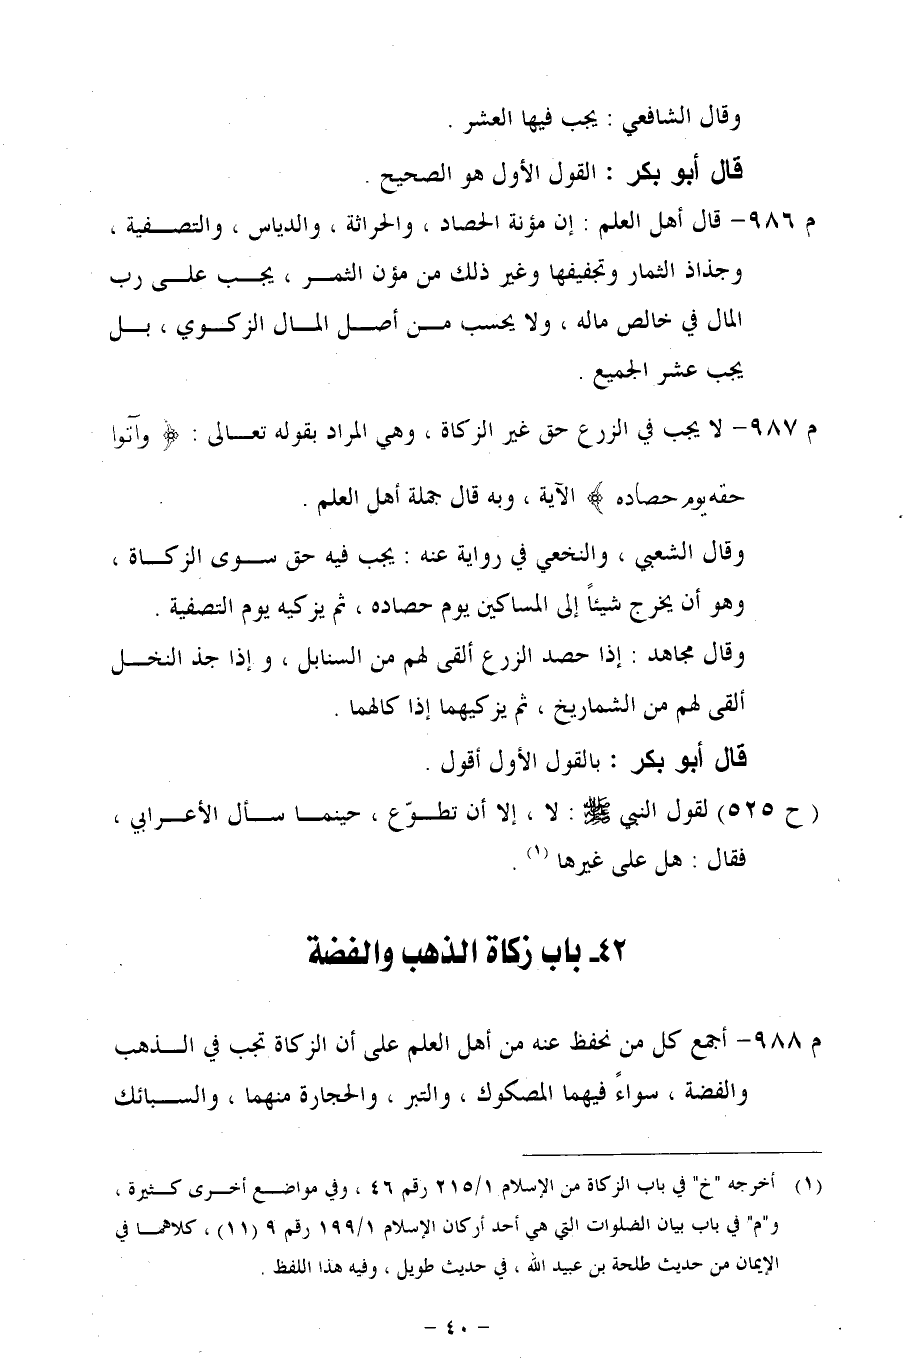 وقال الشافعي : يجب فيها العشر .
قال أبو بكر : القول الأول هو الصحيح .
م ٩٨٦- قال أهل العلم : إن مؤنة الحصاد ، والحراثة ، والدياس ، والتصفية ،
وجذاذ الثمار وتجفيفها وغير ذلك من مؤن الثمر ، يجب على رب
المال في خالص ماله ، ولا يحسب من أصل المال الزكوي ، بل
يجب عشر الجميع .
م ٩٨٧- لا يجب في الزرع حق غير الزكاة ، وهي المراد بقوله تعالى : ﴿ وآتوا
حقه يوم حصاده ﴾ الآية ، وبه قال جملة أهل العلم .
وقال الشعبي ، والنخعي في رواية عنه : يجب فيه حق سوى الزكاة ،
وهو أن يخرج شيئاً إلى المساكين يوم حصاده ، ثم يزكيه يوم التصفية .
وقال مجاهد : إذا حصد الزرع ألقى لهم من السنابل ، و إذا جذ النخل
ألقى لهم من الشماريخ ، ثم يزكيهما إذا كالهما .
قال أبو بكر : بالقول الأول أقول .
( ح ٥٢٥) لقول النبي ﷺ : لا ، إلا أن تطوّع ، حينما سأل الأعرابي ،
فقال : هل على غيرها (١) .
٤٢ـ باب زكاة الذهب والفضة
م ٩٨٨- أجمع كل من نحفظ عنه من أهل العلم على أن الزكاة تجب في الذهب
والفضة ، سواءً فيهما المصكوك ، والتبر ، والحجارة منهما ، والسبائك
(١) أخرجه "خ" في باب الزكاة من الإسلام ٢١٥/١ رقم ٤٦ ، وفي مواضع أخرى كثيرة ،
و"م" في باب بيان الصلوات التي هي أحد أركان الإسلام ١٩٩/١ رقم ٩ (١١) ، كلاهما في
الإيمان من حديث طلحة بن عبيد الله ، في حديث طويل ، وفيه هذا اللفظ .
- ٤٠ -